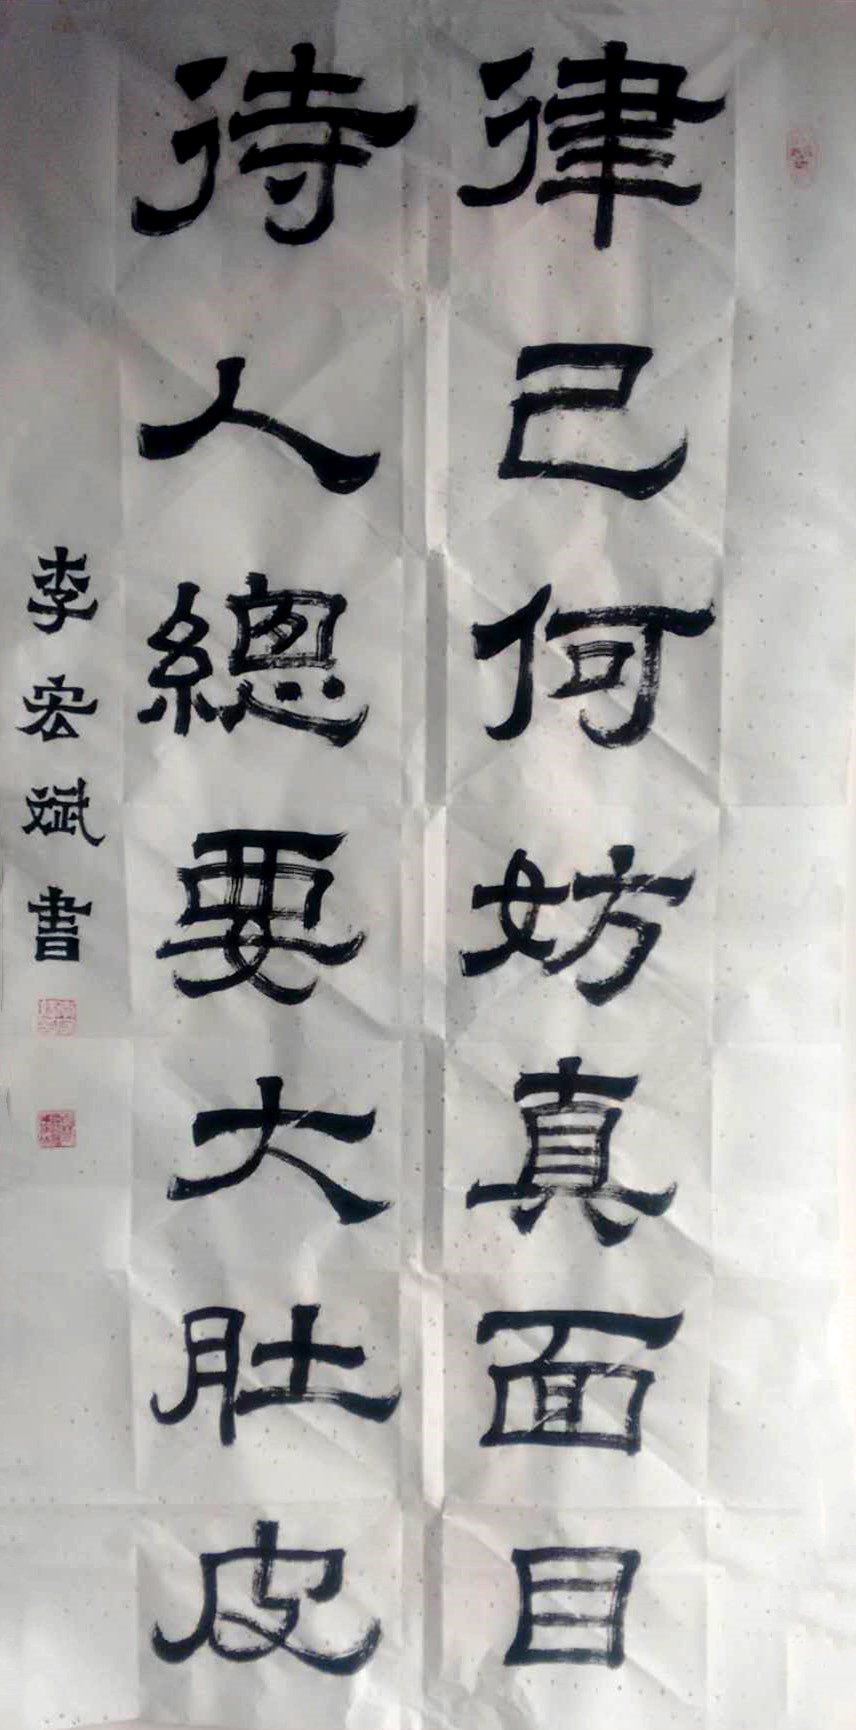 律己何妨真面目
待人總要大肚皮
李宏斌書